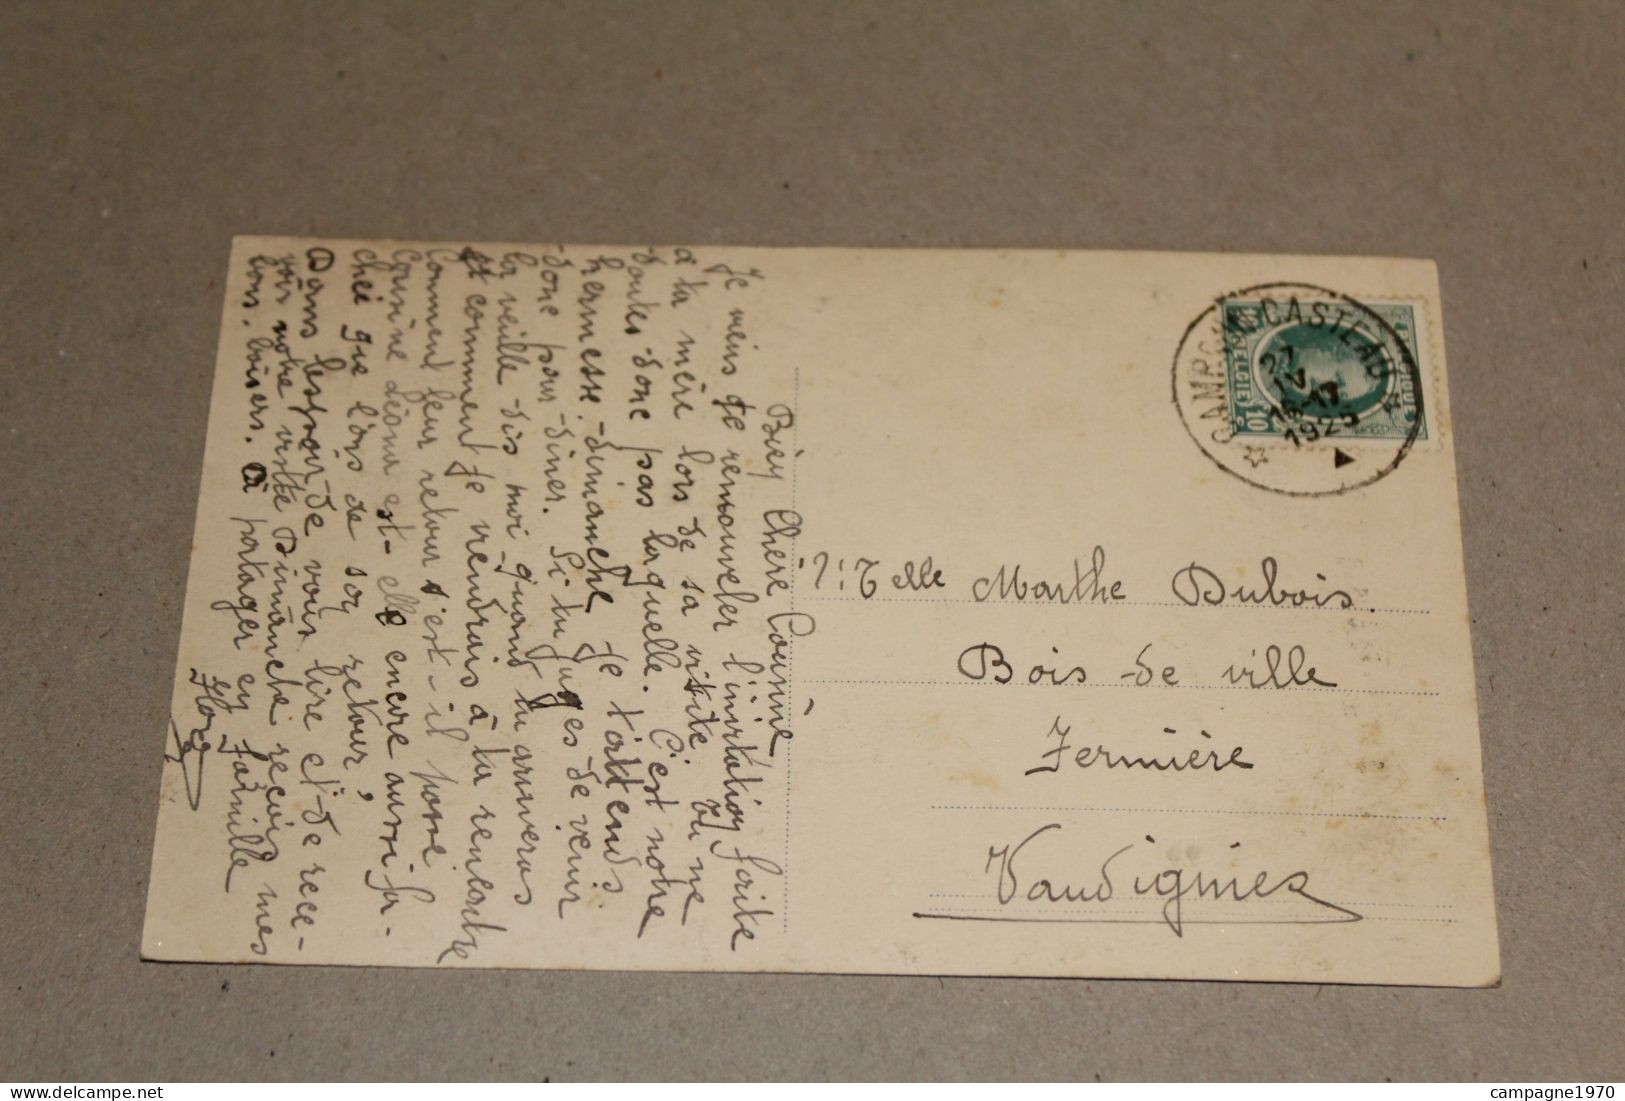 Bien Chère Cousine
Je viens de renouveler l'invitation faite
à ta mère lors de sa visite. Tu ne
doutes donc pas laquelle. C'est notre
kermesse dimanche Je t'attends
donc pour dîner. Si tu juges de venir
la veille dis moi quand tu arriveras
et comment Je viendrais à ta rencontre
Comment leur retour s'est-il passé
Cousine Léona est-elle encore aussi fa-
chée que lors de son retour,
Dans l'espoir de vous lire et de rece-
voir notre visite Dimanche reçois mes
bons baisers. à partager en famille
CAMBRON-CASTEAU
27
IV
16-17
1925
BELGIE
BELGIQUE
10 c
Melle Marthe Dubois.
Bois de ville
Fermière
Vaudignies
campagne1970